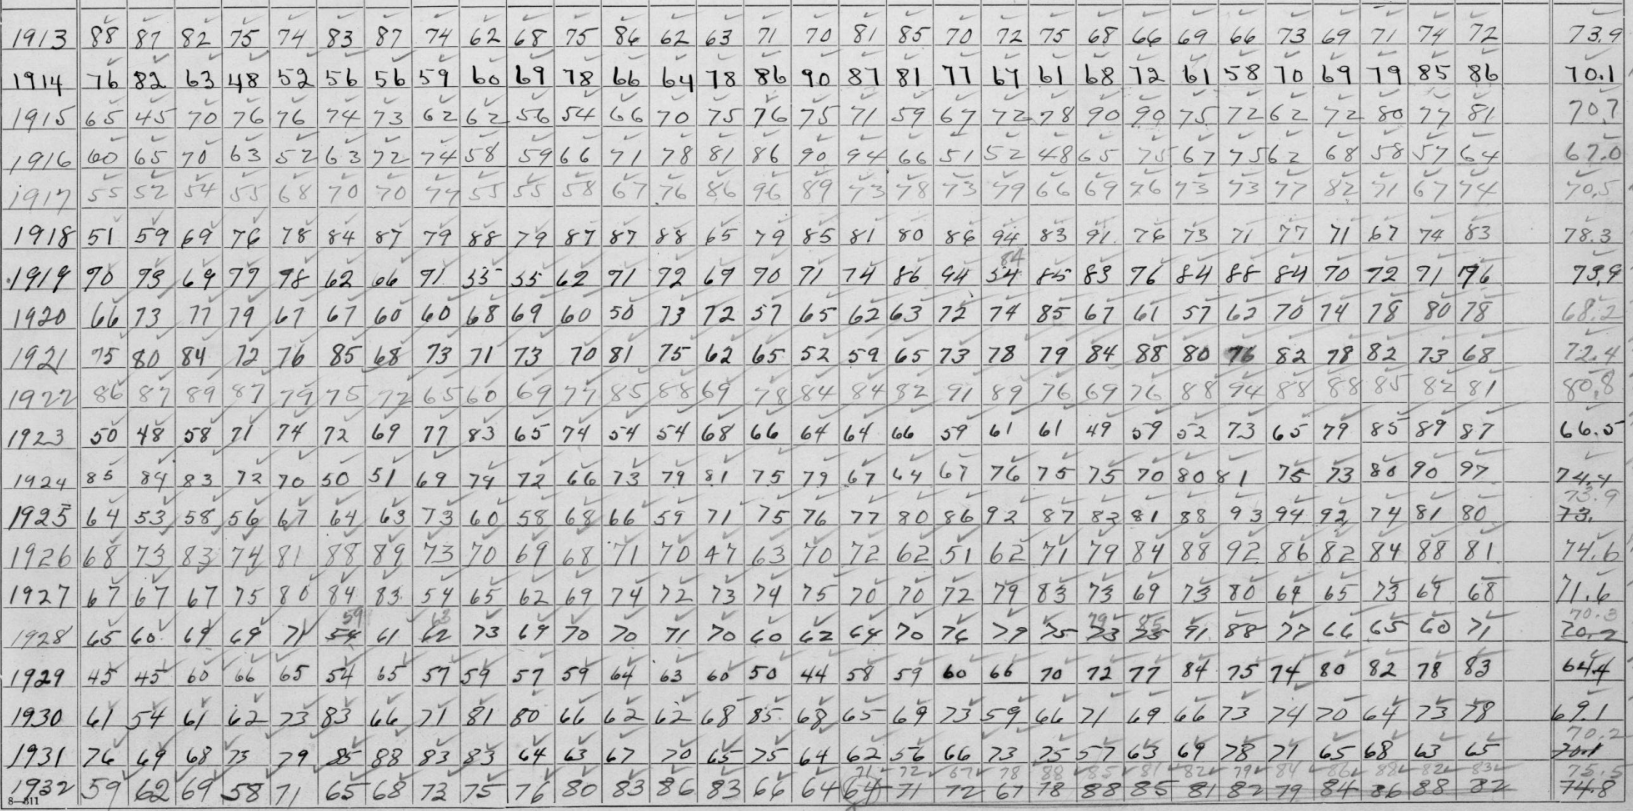 1913 88 87 82 75 74 83 87 74 62 68 75 86 62 63 71 70 81 85 70 72 75 68 66 69 66 73 69 71 74 72 73.9
1914 76 82 63 48 52 56 56 59 60 69 78 66 64 78 86 90 87 81 77 67 61 68 72 61 58 70 69 79 85 86 70.1
1915 65 45 70 76 76 74 73 62 62 56 54 66 70 75 76 75 71 59 67 72 78 90 90 75 72 62 72 80 77 81 70.7
1916 60 65 70 63 52 63 72 74 58 59 66 71 78 81 86 90 94 66 51 52 48 65 75 67 75 62 68 58 57 64 67.0
1917 55 52 54 55 68 70 70 77 55 55 58 67 76 86 96 89 73 78 73 79 66 69 76 73 73 77 82 71 67 74 70.5
1918 51 59 69 76 78 84 87 79 88 79 87 87 88 65 79 85 81 80 86 94 83 91 76 73 71 77 71 67 74 83 78.3
84
1919 70 73 69 77 78 62 66 71 55 55 62 71 72 67 70 71 74 86 94 54 85 83 76 84 88 84 70 72 71 76 73.9
1920 66 73 77 79 67 67 60 60 68 69 60 50 73 72 57 65 62 63 72 74 85 67 61 57 62 70 74 78 80 78 68.2
1921 75 80 84 72 76 85 68 73 71 73 70 81 75 62 65 52 59 65 73 78 79 84 88 80 76 82 78 82 73 68 72.4
1922 86 87 89 87 79 75 72 65 60 69 77 85 88 69 78 84 84 82 91 89 76 69 76 88 94 88 88 85 82 81 80.8
1923 50 48 58 71 74 72 69 77 83 65 74 54 54 68 66 64 64 66 59 61 61 49 59 52 73 65 79 85 89 87 66.5
1924 85 84 83 72 70 50 51 69 79 72 66 73 79 81 75 79 67 64 67 76 75 75 70 80 81 75 73 80 90 97 74.4
73.9
1925 64 53 58 56 67 64 63 73 60 58 68 66 59 71 75 76 77 80 86 92 87 83 81 88 93 94 92 74 81 80 73.
1926 68 73 83 74 81 88 89 73 70 69 68 71 70 47 63 70 72 62 51 62 71 79 84 88 92 86 82 84 88 81 74.6
1927 67 67 67 75 80 84 83 54 65 62 69 74 72 73 74 75 70 70 72 79 83 73 69 73 80 64 65 73 69 68 71.6
59 63 79 85 70.3
1928 65 60 69 69 71 54 61 62 73 69 70 70 71 70 60 62 64 70 76 79 75 73 75 91 88 77 66 65 60 71 70.2
1929 45 45 60 66 65 54 65 57 59 57 59 64 63 60 50 44 58 59 60 66 70 72 77 84 75 74 80 82 78 83 64.4
1930 61 54 61 62 73 83 66 71 81 80 66 62 62 68 85 68 65 69 73 59 66 71 69 66 73 74 70 64 73 78 69.1
70.2
1931 76 69 68 75 79 85 88 83 83 64 63 67 70 65 75 64 62 56 66 73 75 57 63 69 78 71 65 68 63 65 70.1
71 72 67 78 88 85 81 82 79 84 86 88 82 83 75.5
1932 59 62 69 58 71 65 68 73 75 76 80 83 86 83 66 64 64 71 72 67 78 88 85 81 82 79 84 86 88 82 74.8